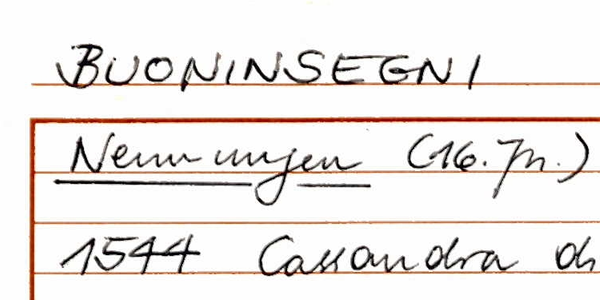 BUONINSEGNI
Nennungen (16. Jh.)
1544 Cassandra di